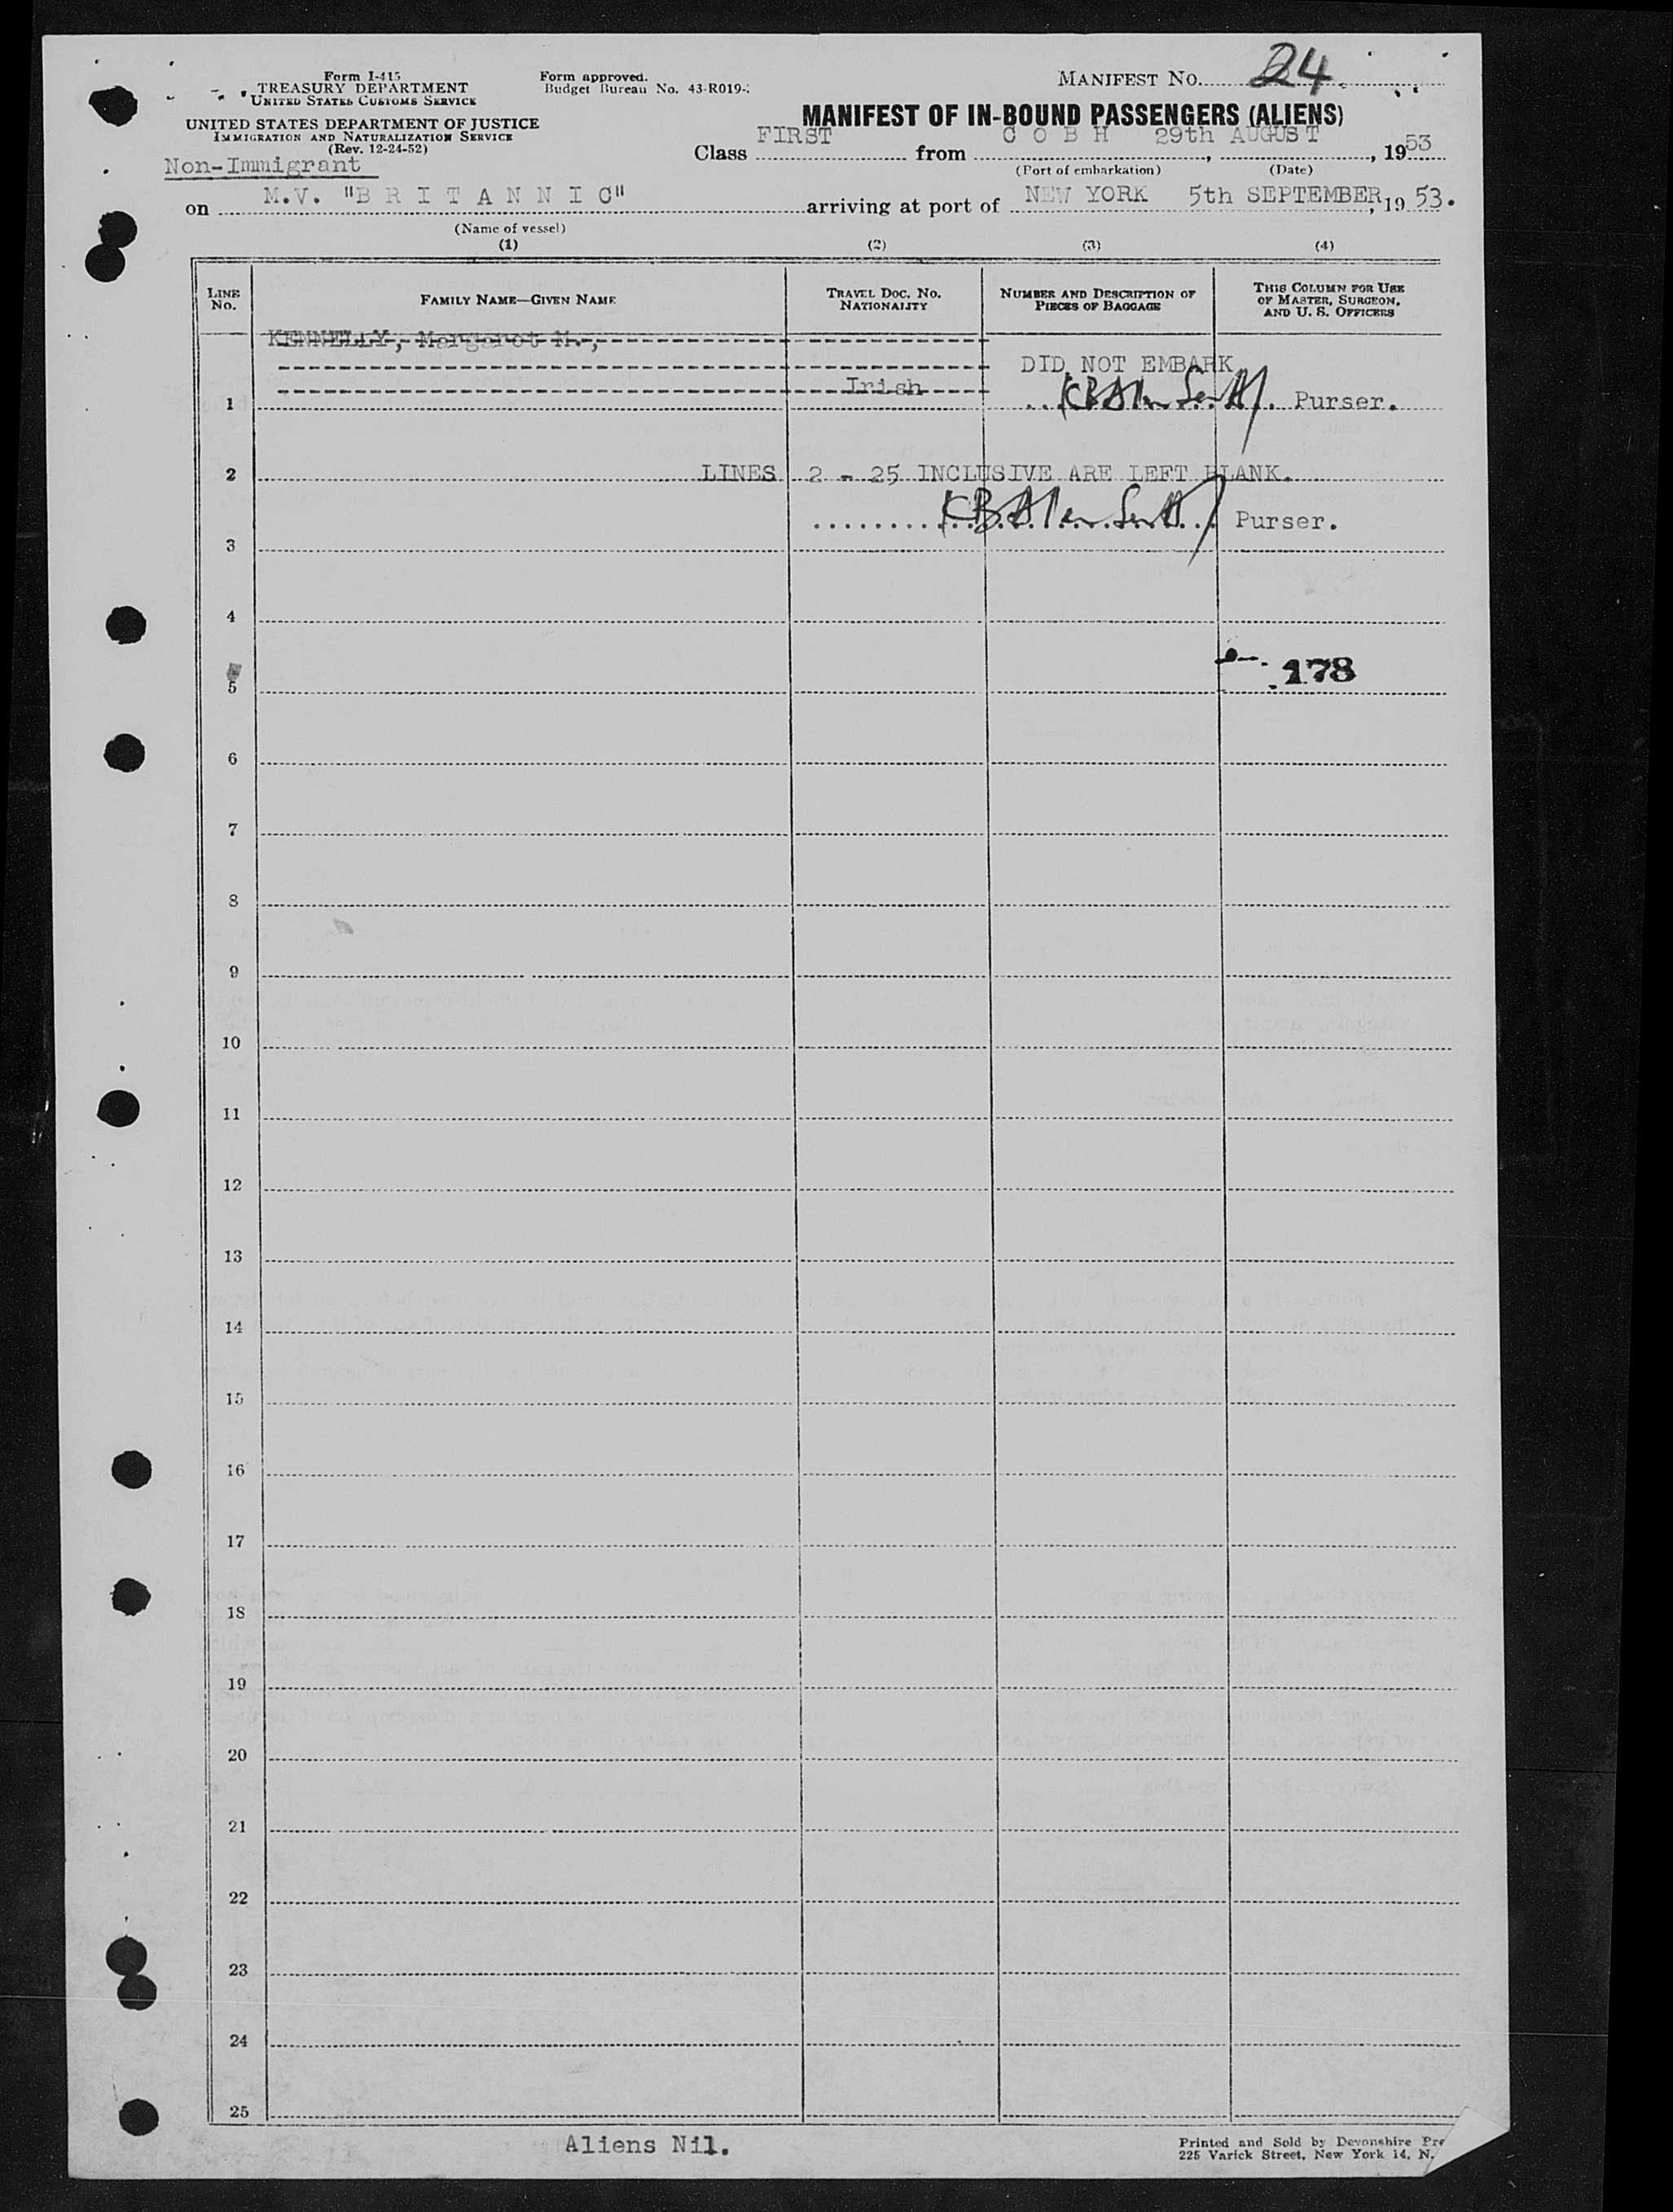 Form I-415
TREASURY DEPARTMENT
UNITED STATES CUSTOMS SERVICE
UNITED STATES DEPARTMENT OF JUSTICE
IMMIGRATION AND NATURALIZATION SERVICE
(Rev. 12-24-52)
Non-Immigrant
Form approved.
Budget Bureau No. 43-R019-
MANIFEST NO. 24
MANIFEST OF IN-BOUND PASSENGERS (ALIENS)
Class FIRST from C O B H 29th AUGUST, 1953
(Port of embarkation) (Date)
on M.V. "B R I T A N N I C" arriving at port of NEW YORK 5th SEPTEMBER, 19 53.
(Name of vessel)
(1) (2) (3) (4)
LINE NO.
FAMILY NAME—GIVEN NAME
TRAVEL DOC. NO. NATIONALITY
NUMBER AND DESCRIPTION OF PIECES OF BAGGAGE
THIS COLUMN FOR USE OF MASTER, SURGEON, AND U. S. OFFICERS
KENNELLY, Margaret M.,
DID NOT EMBARK
Irish
1 Purser.
2 LINES 2 - 25 INCLUSIVE ARE LEFT BLANK.
Purser.
3
4
178
5
6
7
8
9
10
11
12
13
14
15
16
17
18
19
20
21
22
23
24
25
Aliens Nil.
Printed and Sold by Devonshire
225 Varick Street, New York 14, N.